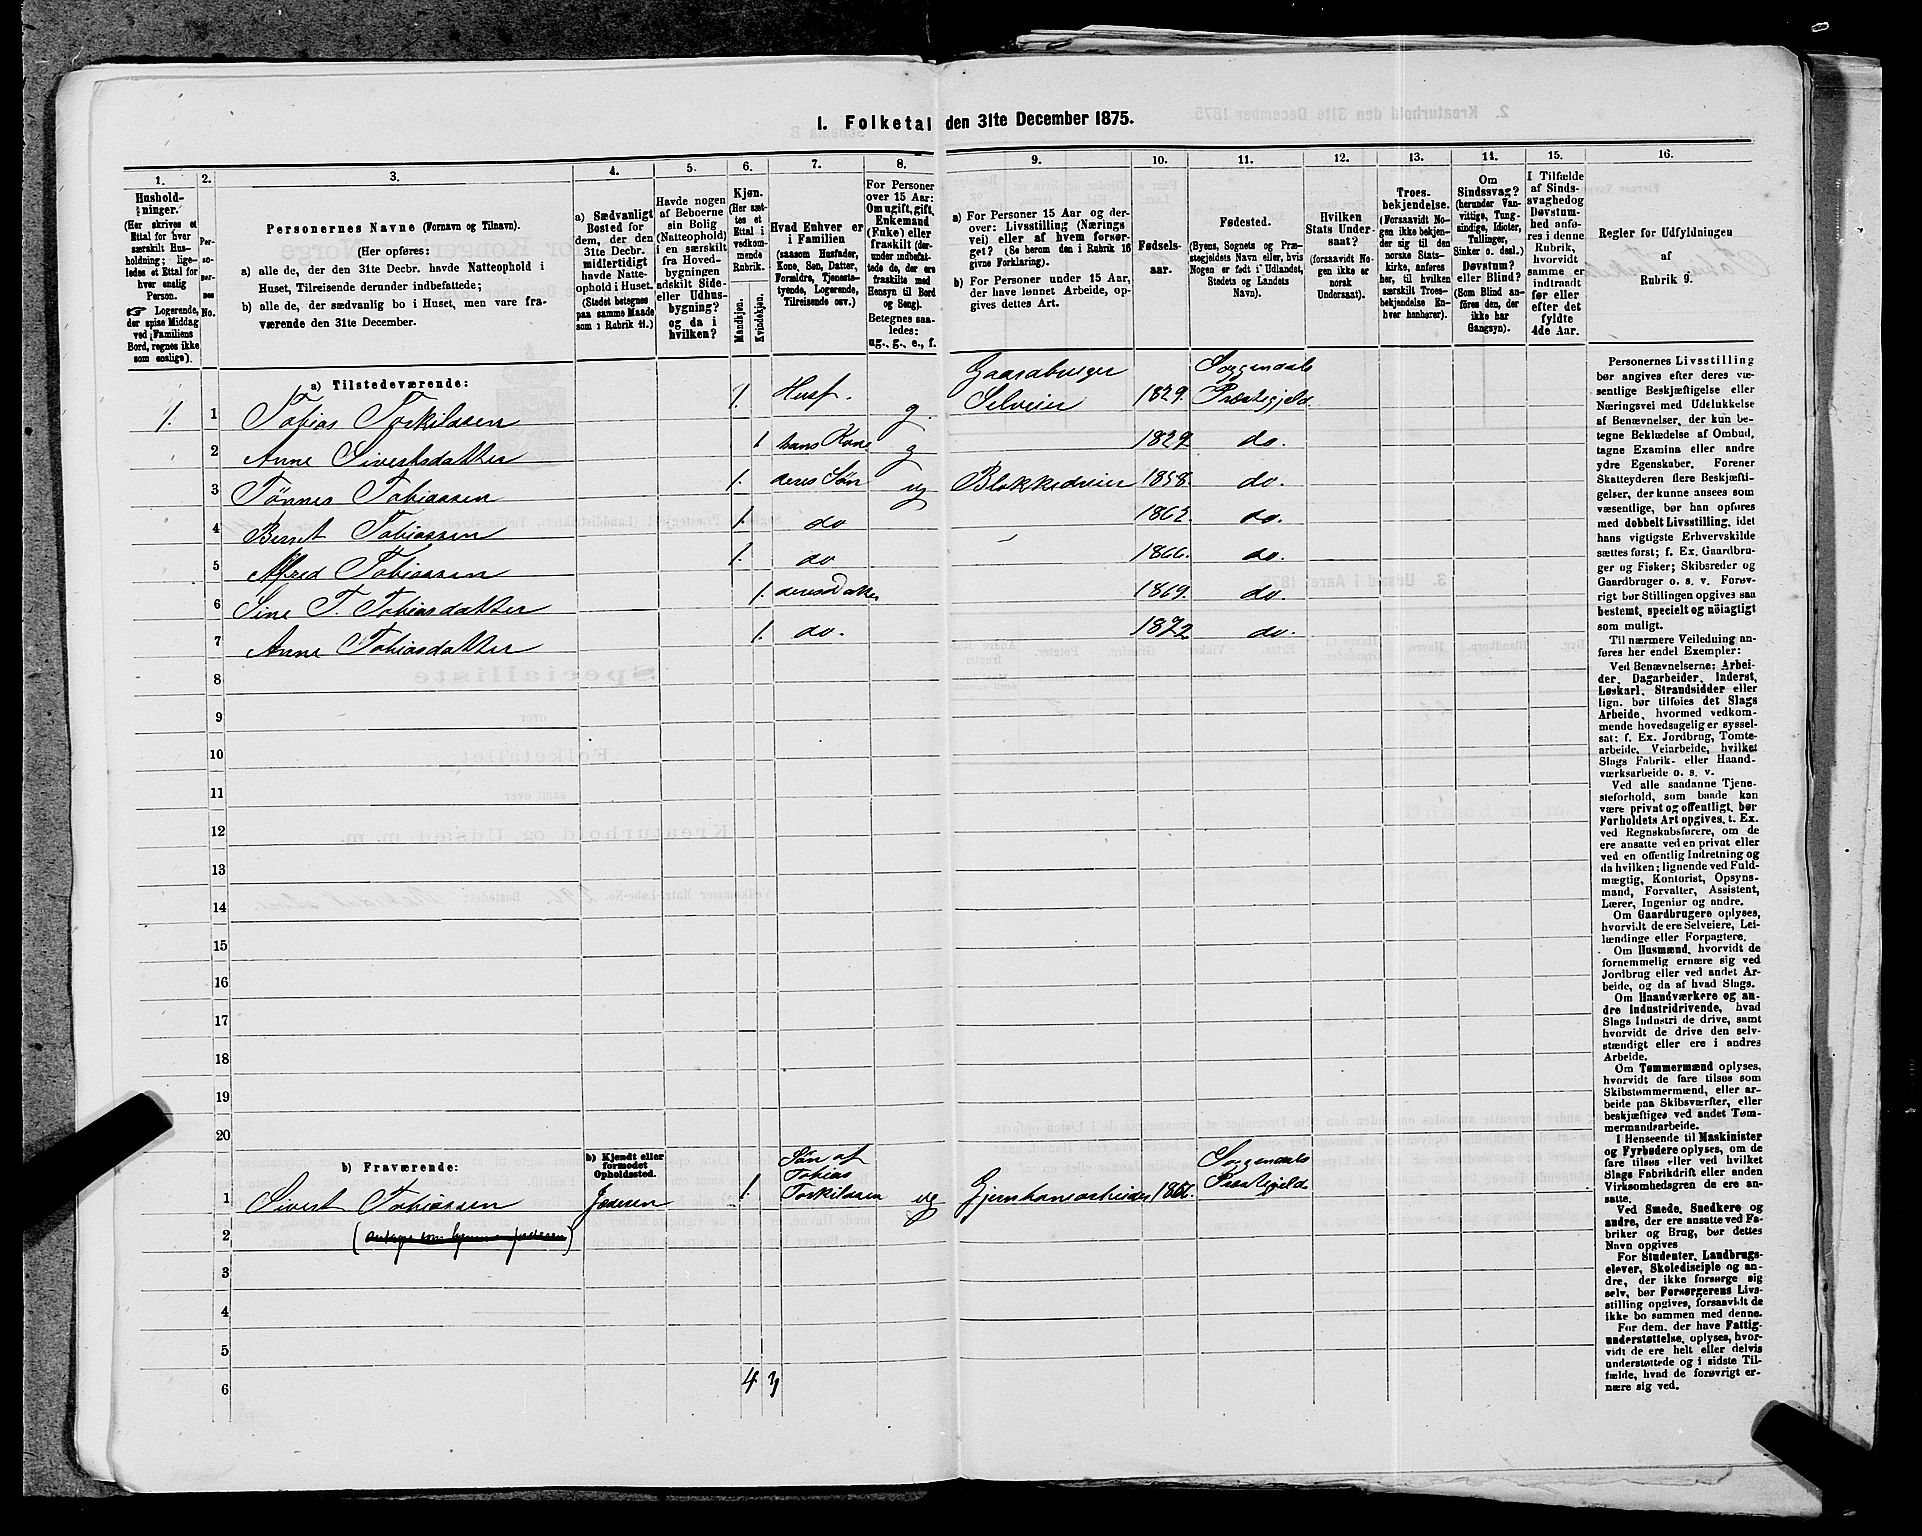 I. Folketal den 31te December 1875.
1. 2. 3. 4. 5. 6. 7. 8. 9. 10. 11. 12. 13. 14. 15. 16.
Hushold-
ninger.
(Her skrives et
Ettal for hver
særskilt Hus-
holdning; lige-
ledes et Ettal for
hver enslig
Person.
☞ Logerende,
der spise Middag
ved Familiens
Bord, regnes ikke
som enslige).
Per-
so-
ner-
nes
No.
Personernes Navne (Fornavn og Tilnavn).
(Her opføres:
a) alle de, der den 31te Decbr. havde Natteophold i
Huset, Tilreisende derunder indbefattede;
b) alle de, der sædvanlig bo i Huset, men vare fra-
værende den 31te December.
a) Sædvanligt
Bosted for
dem, der den
31te Decbr.
midlertidigt
havde Natte-
ophold i Huset.
(Stedet betegnes
paa samme Maade
som i Rubrik 11.)
Havde nogen
af Beboerne
sin Bolig
(Natteophold)
i en særskilt
fra Hoved-
bygningen
adskilt Side-
eller Udhus-
bygning?
og da i
hvilken?
Kjøn.
(Her sæt-
tes et
Ettal i
vedkom-
mende
Rubrik.
Mandkjøn.
Kvindekjøn.
Hvad Enhver er
i Familien
(saasom Husfader,
Kone, Søn, Datter,
Forældre, Tjeneste-
tyende, Logerende,
Tilreisende osv.)
For Personer
over 15 Aar:
Om ugift, gift,
Enkemand
(Enke) eller
fraskilt (der-
under indbefat-
tede de, der ere
fraskilte med
Hensyn til Bord
og Seng).
Betegnes saa-
ledes:
ug., g., e., f.
a) For Personer 15 Aar og der-
over: Livsstilling (Nærings
vei) eller af hvem forsør-
get? (Se herom den i Rubrik 16
givne Forklaring).
b) For Personer under 15 Aar,
der have lønnet Arbeide, op-
gives dettes Art.
Fødsels-
aar.
Fødested.
(Byens, Sognets og Præ-
stegjeldets Navn eller, hvis
Nogen er født i Udlandet,
Stedets og Landets
Navn).
Hvilken
Stats Under-
saat?
(forsaavidt No-
gen ikke er
norsk
Undersaat).
Troes-
bekjendelse.
(Forsaavidt No-
gen ikke bekjen-
der sig til den
norske Stats-
kirke, anføres
her, til hvilken
særskilt Troes-
bekjendelse En-
hver henhører).
Om
Sindssvag?
(herunder Van-
vittige, Tung-
sindige, Idioter,
Tullinger,
Sinker o. desl.)
Døvstum?
eller Blind?
(Som Blind an-
føres den, der
ikke har
Gangsyn).
I Tilfælde
af Sinds-
svaghed og
Døvstum-
hed anfø-
res i denne
Rubrik,
hvorvidt
samme er
indtraadt
før eller
efter det
fyldte
4de Aar.
Regler for Udfyldningen
af
Rubrik 9.
a) Tilstedeværende:
1. 1 Tobias Torkildsen 1. Husf. g. Gaardbruger Selveier 1829. Soggendals Præstegjeld.
2 Anne Sivertsdatter 1 hans Kone g 1829 do.
3 Tønnes Tobiassen 1. deres Søn ug Blokkedreier 1858. do.
4 Berent Tobiassen 1. do 1862. do.
5 Alfred Tobiassen 1. do 1866. do.
6 Sine T. Tobiasdatter 1. deres Datter 1869. do.
7 Anne Tobiasdatter 1. do. 1872 do.
8
9
10
11
12
13
14
15
16
17
18
19
20
b) Fraværende:
b) Kjendt eller
formodet
Opholdssted.
1 Sivert Tobiassen Jæderen 1. Søn af Tobias Torkilssen ug Jernbanearbeider Soggendals Præstegjeld
2
3
4
5
6
4 3
Personernes Livsstilling
bør angives efter deres væ-
sentlige Beskjæftigelse eller
Næringsvei med Udelukkelse
af Benævnelser, der kun be-
tegne Beklædelse af Ombud,
tagne Examina eller andre
ydre Egenskaber. Forener
Skatteyderen flere Beskjæfti-
gelser, der kunne ansees som
væsentlige, bør han opføres
med dobbelt Livsstilling, idet
hans vigtigste Erhvervskilde
sættes først; f. Ex. Gaardbru-
ger og Fisker; Skibsreder og
Gaardbruger o. s. v. Forøv-
rigt bør Stillingen opgives saa
bestemt, specielt og nöiagtigt
som muligt.
Til nærmere Veiledning an-
føres her endel Exempler:
Ved Benævnelserne: Arbei-
der, Dagarbeider, Inderst,
Løskarl, Strandsidder eller
lign. bør tilføies det Slags
Arbeide, hvormed vedkom-
mende hovedsagelig er syssel-
sat; f. Ex. Jordbrug, Tomte-
arbeide, Veiarbeide, hvilket
Slags Fabrik- eller Haand-
værksarbeide o. s. v.
Ved alle saadanne Tjene-
steforhold, som baade kan
være privat og offentligt, bør
Forholdets Art opgives, t. Ex.
ved Regnskabsførere, om de
ere ansatte ved en privat eller
ved en offentlig Indretning og
da hvilken; lignende ved Fuld-
mægtig, Kontorist, Opsyns-
mand, Forvalter, Assistent,
Lærer, Ingeniør og andre.
Om Gaardbrugere oplyses,
hvorvidt de ere Selveiere, Lei-
lændinge eller Forpagtere.
Om Husmænd, hvorvidt de
fornemmelig ernære sig ved
Jordbrug eller ved andet Ar-
beide, og da af hvad Slags.
Om Haandværkere og an-
dre Industridrivende, hvad
Slags Industri de drive, samt
hvorvidt de drive den selv-
stændigt eller ere i andres
Arbeide.
Om Tømmermænd oplyses,
hvorvidt de fare tilsøs som
Skibstømmermænd, eller ar-
beide paa Skibsværfter, eller
beskjæftiges ved andet Tøm-
mermandsarbeide.
I Henseende til Maskinister
og Fyrbødere oplyses, om de
fare tilsøs eller ved hvilket
Slags Fabrikdrift eller anden
Virksomhedsgren de ere an-
satte.
Ved Smede, Snedkere og
andre, der ere ansatte ved Fa-
briker og Brug, bør dettes
Navn opgives
For Studenter, Landbrugs-
elever, Skoledisciple og an-
dre, der ikke forsørge sig
selv, bør Forsørgerens Livs-
stilling opgives, forsaavidt de
ikke bo sammen med denne.
For dem, der have Fattig-
understøttelse, oplyses, hvor-
vidt de ere helt eller delvis
understøttede og i sidste Til-
fælde, hvad de forøvrigt er-
nære sig ved.